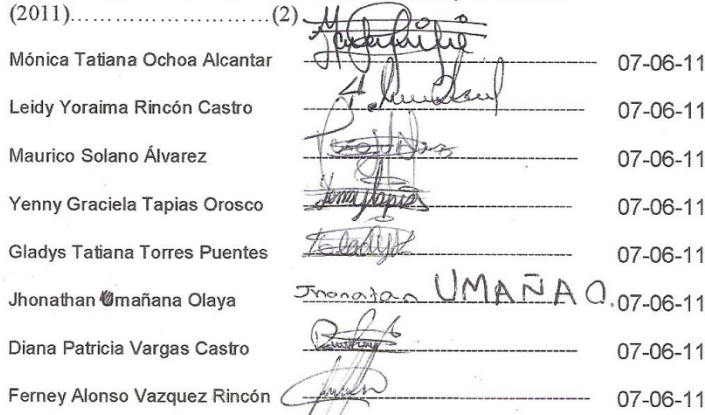 (2011)...........................(2)
Mónica Tatiana Ochoa Alcantar 07-06-11
Leidy Yoraima Rincón Castro 07-06-11
Maurico Solano Álvarez 07-06-11
Yenny Graciela Tapias Orosco 07-06-11
Gladys Tatiana Torres Puentes Gladys 07-06-11
Jhonathan Umañana Olaya Jhonatan UMAÑA O. 07-06-11
Diana Patricia Vargas Castro 07-06-11
Ferney Alonso Vazquez Rincón 07-06-11